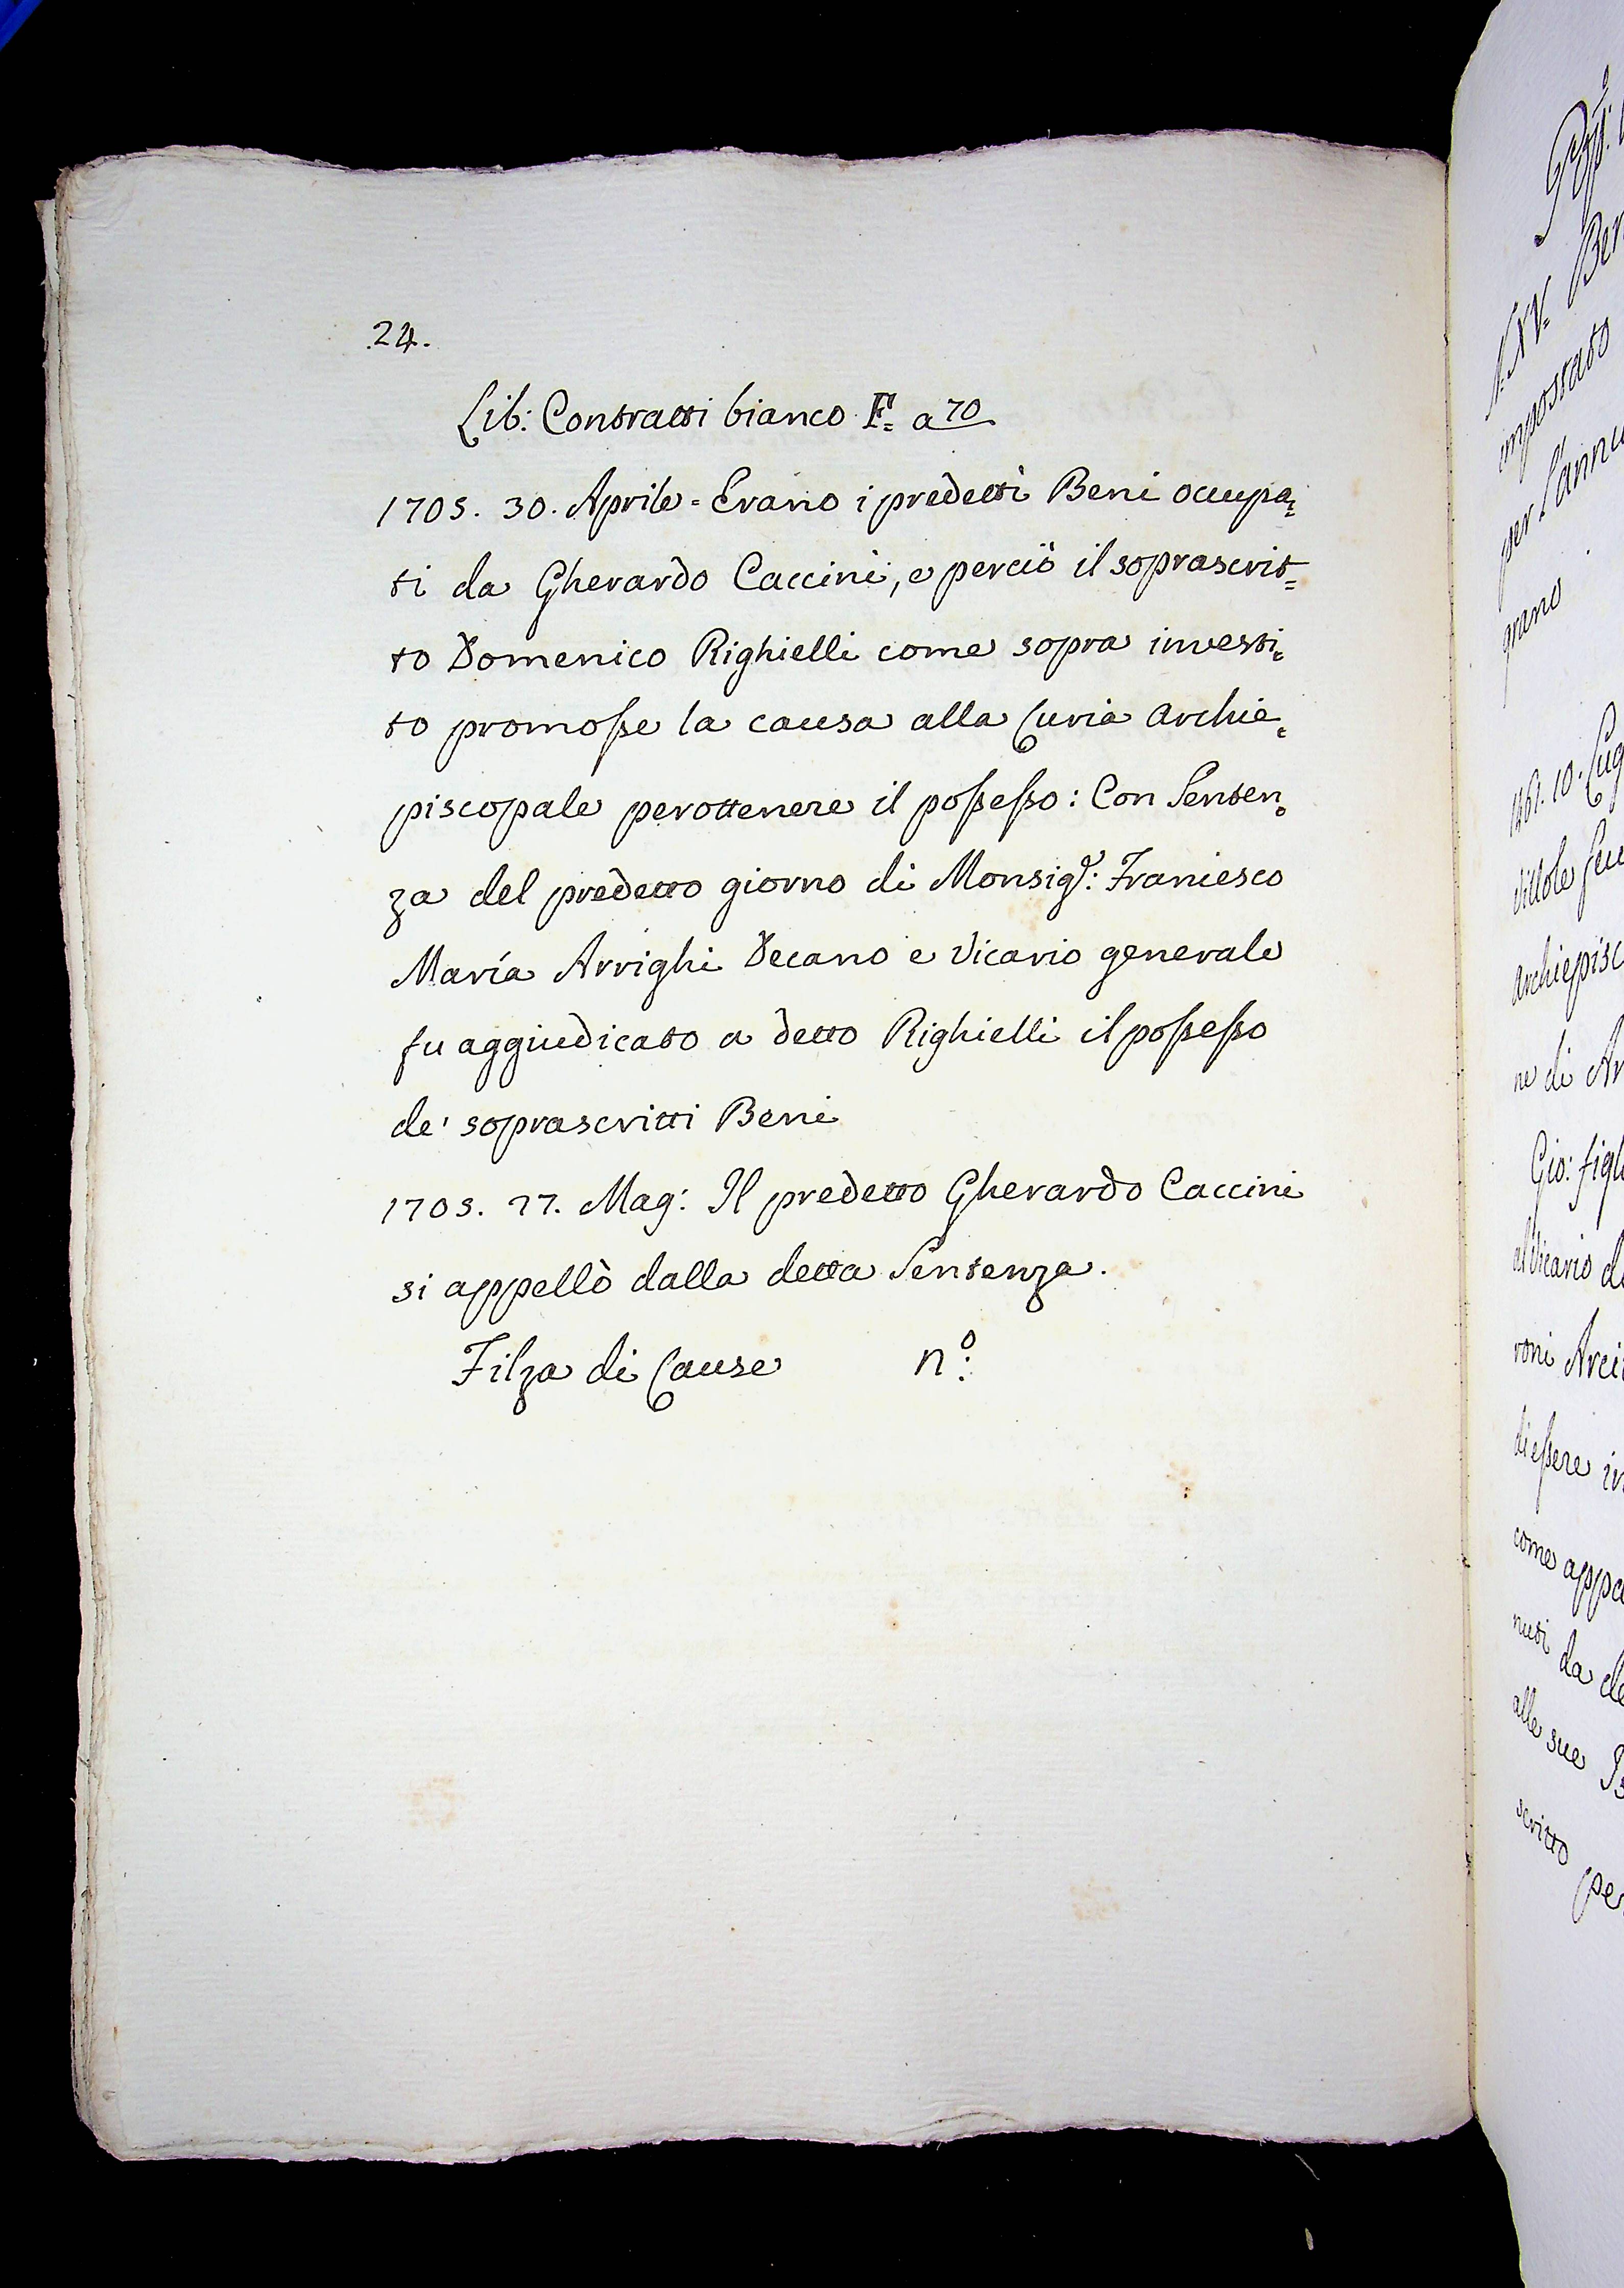 24.
Lib: Contratti bianco F= a 70
1705. 30. Aprile = Erano i predetti Beni occupa=
ti da Gherardo Caccini, e perciò il soprascrit=
to Domenico Righielli come sopra investi=
to promosse la causa alla Curia Archie=
piscopale per ottenere il possesso: Con Senten=
za del predetto giorno di Monsigr: Francesco
Maria Arrighi Decano e Vicario generale
fu aggiudicato a detto Righielli il possesso
de' soprascritti Beni
1705. 27. Mag: Il predetto Gherardo Caccini
si appellò dalla detta Sentenza.
Filza di Cause no:
impostato
per l'annu
grano
archiepisc
ne di Ar
Gio: figl
di essere in
come appa
nuti da de
alle sue
scritto per